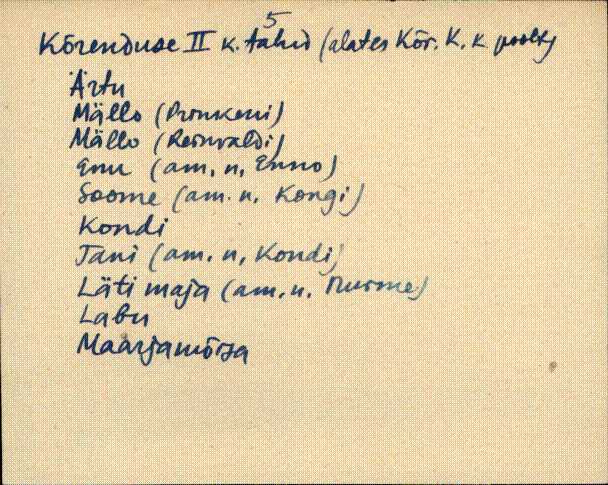 5
Kõrenduse II k. talud (alates Kõr. K. k. poolt)
Ärtu
Mällo (Prunkeni)
Mällo (Reinvaldi)
Enu (am. n. Enno)
Soome (am. n. Kongi)
Kondi
Jani (am. n. Kondi)
Läti maja (am. n. Nurme)
Labu
Maarjamõisa